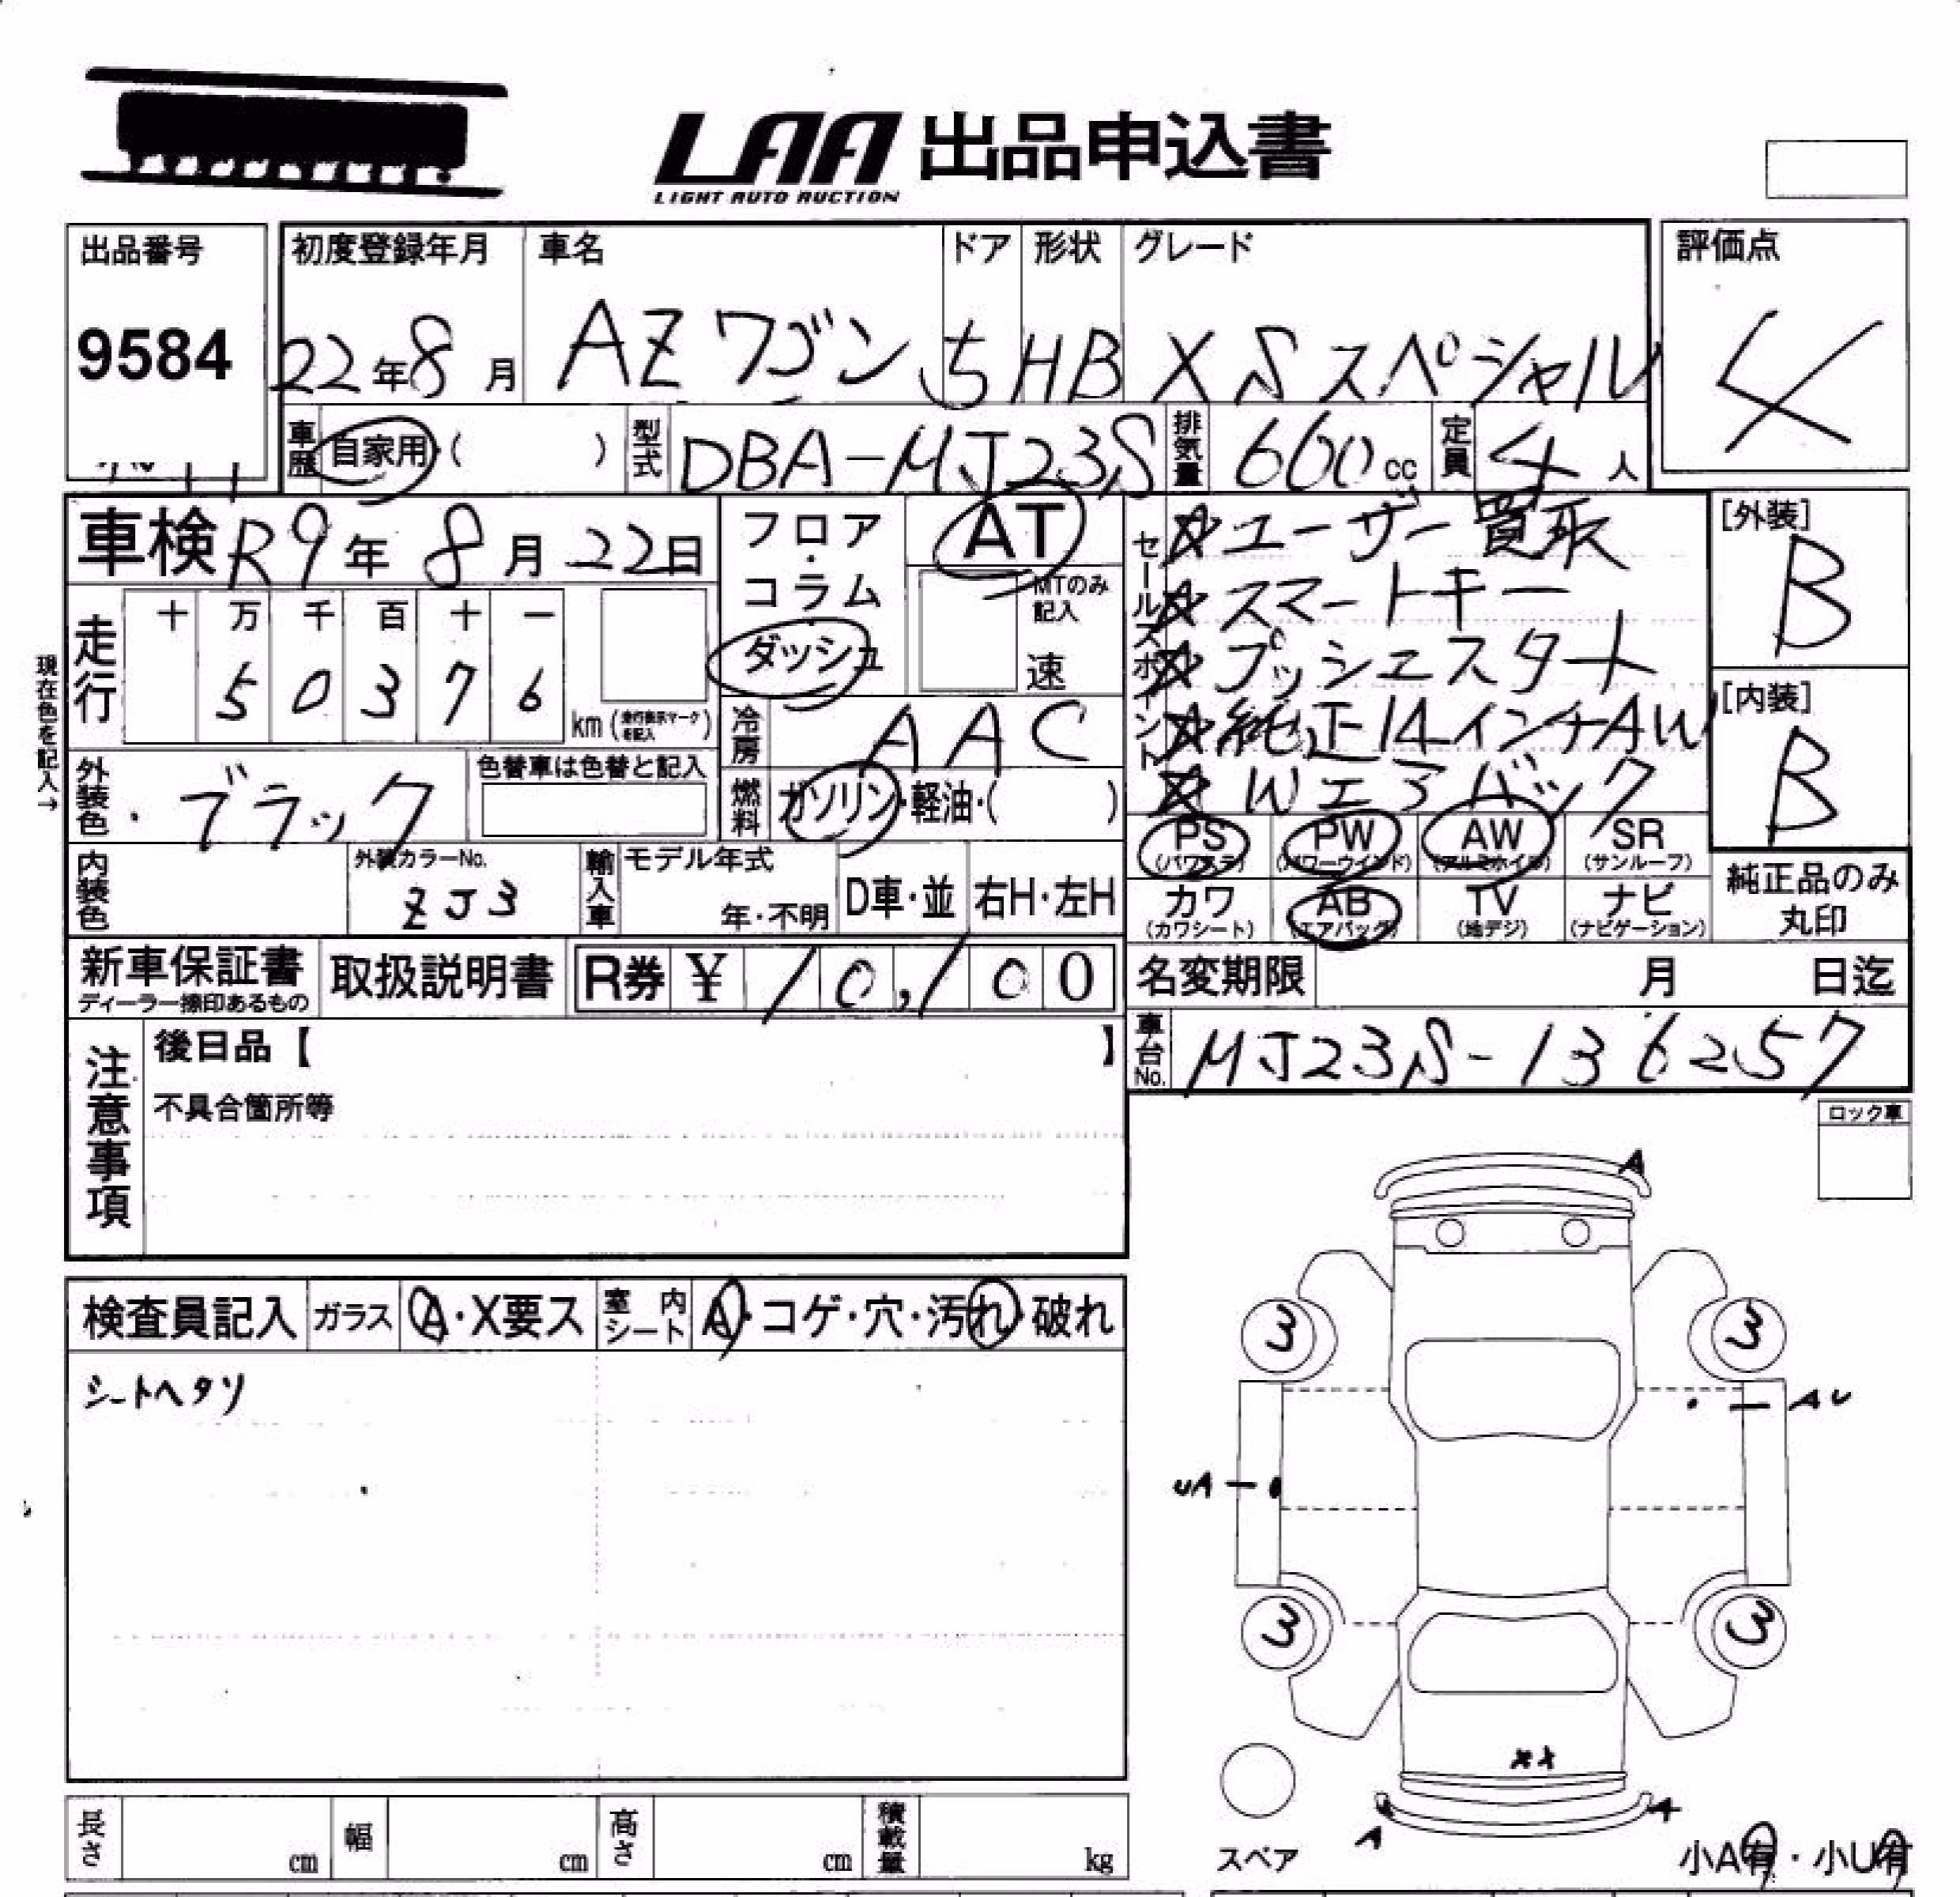 LAA 出品申込書
LIGHT AUTO AUCTION
出品番号
9584
初度登録年月
22年8月
車名
AZワゴン
ドア
5
形状
HB
グレード
XSスペシャル
評価点
4
車歴
自家用・( )
型式
DBA-MJ23S
排気量
660cc
定員
4人
車検 R9年8月22日
フロア・コラム・ダッシュ
AT
MTのみ記入
速
セールスポイント
☆ユーザー買取
☆スマートキー
☆プッシュスタート
☆純正14インチAW
☆Wエアバック
[外装]
B
[内装]
B
現在色を記入→
走行
十 万 千 百 十 一
5 0 3 7 6
km(走行表示マークを記入)
冷房
AAC
外装色
ブラック
色替車は色替と記入
燃料
ガソリン・軽油・( )
PS (パワステ)
PW (パワーウインド)
AW (アルミホイル)
SR (サンルーフ)
内装色
外装カラーNo.
ZJ3
輸入車
モデル年式
年・不明
D車・並
右H・左H
カワ (カワシート)
AB (エアバック)
TV (地デジ)
ナビ (ナビゲーション)
純正品のみ丸印
新車保証書
ディーラー捺印あるもの
取扱説明書
R券 ¥ 10,100
名変期限 月 日迄
車台No.
MJ23S-136257
注意事項
後日品【 】
不具合箇所等
ロック車
検査員記入
ガラス A・X要ス
室内シート A・コゲ・穴・汚れ・破れ
シートヘタリ
A
3 3
AU
UA
3 3
XX
A A
スペア
小A有・小U有
長さ cm
幅 cm
高さ cm
積載量 kg